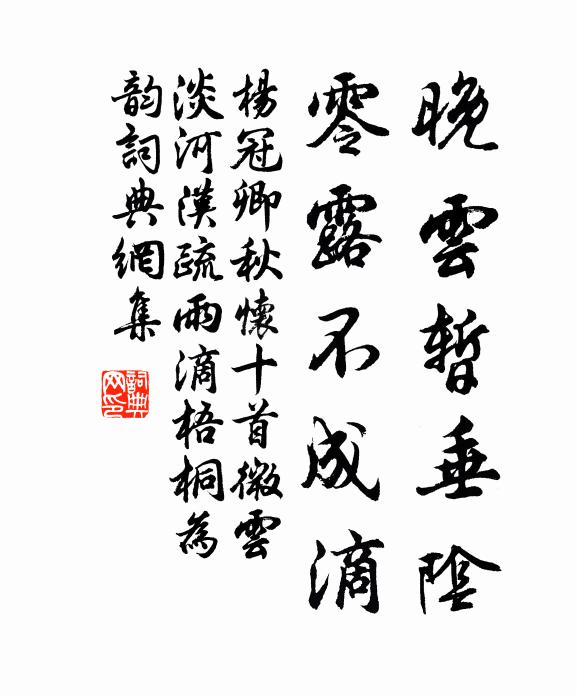 晚雲暫垂陰
零露不成滴
楊冠卿秋懷十首微雲
淡河漢疏雨滴梧桐為
韵詞典網集
詞典网印